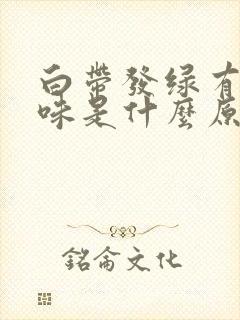 白帶發绿有
味是什麼原
銘侖文化